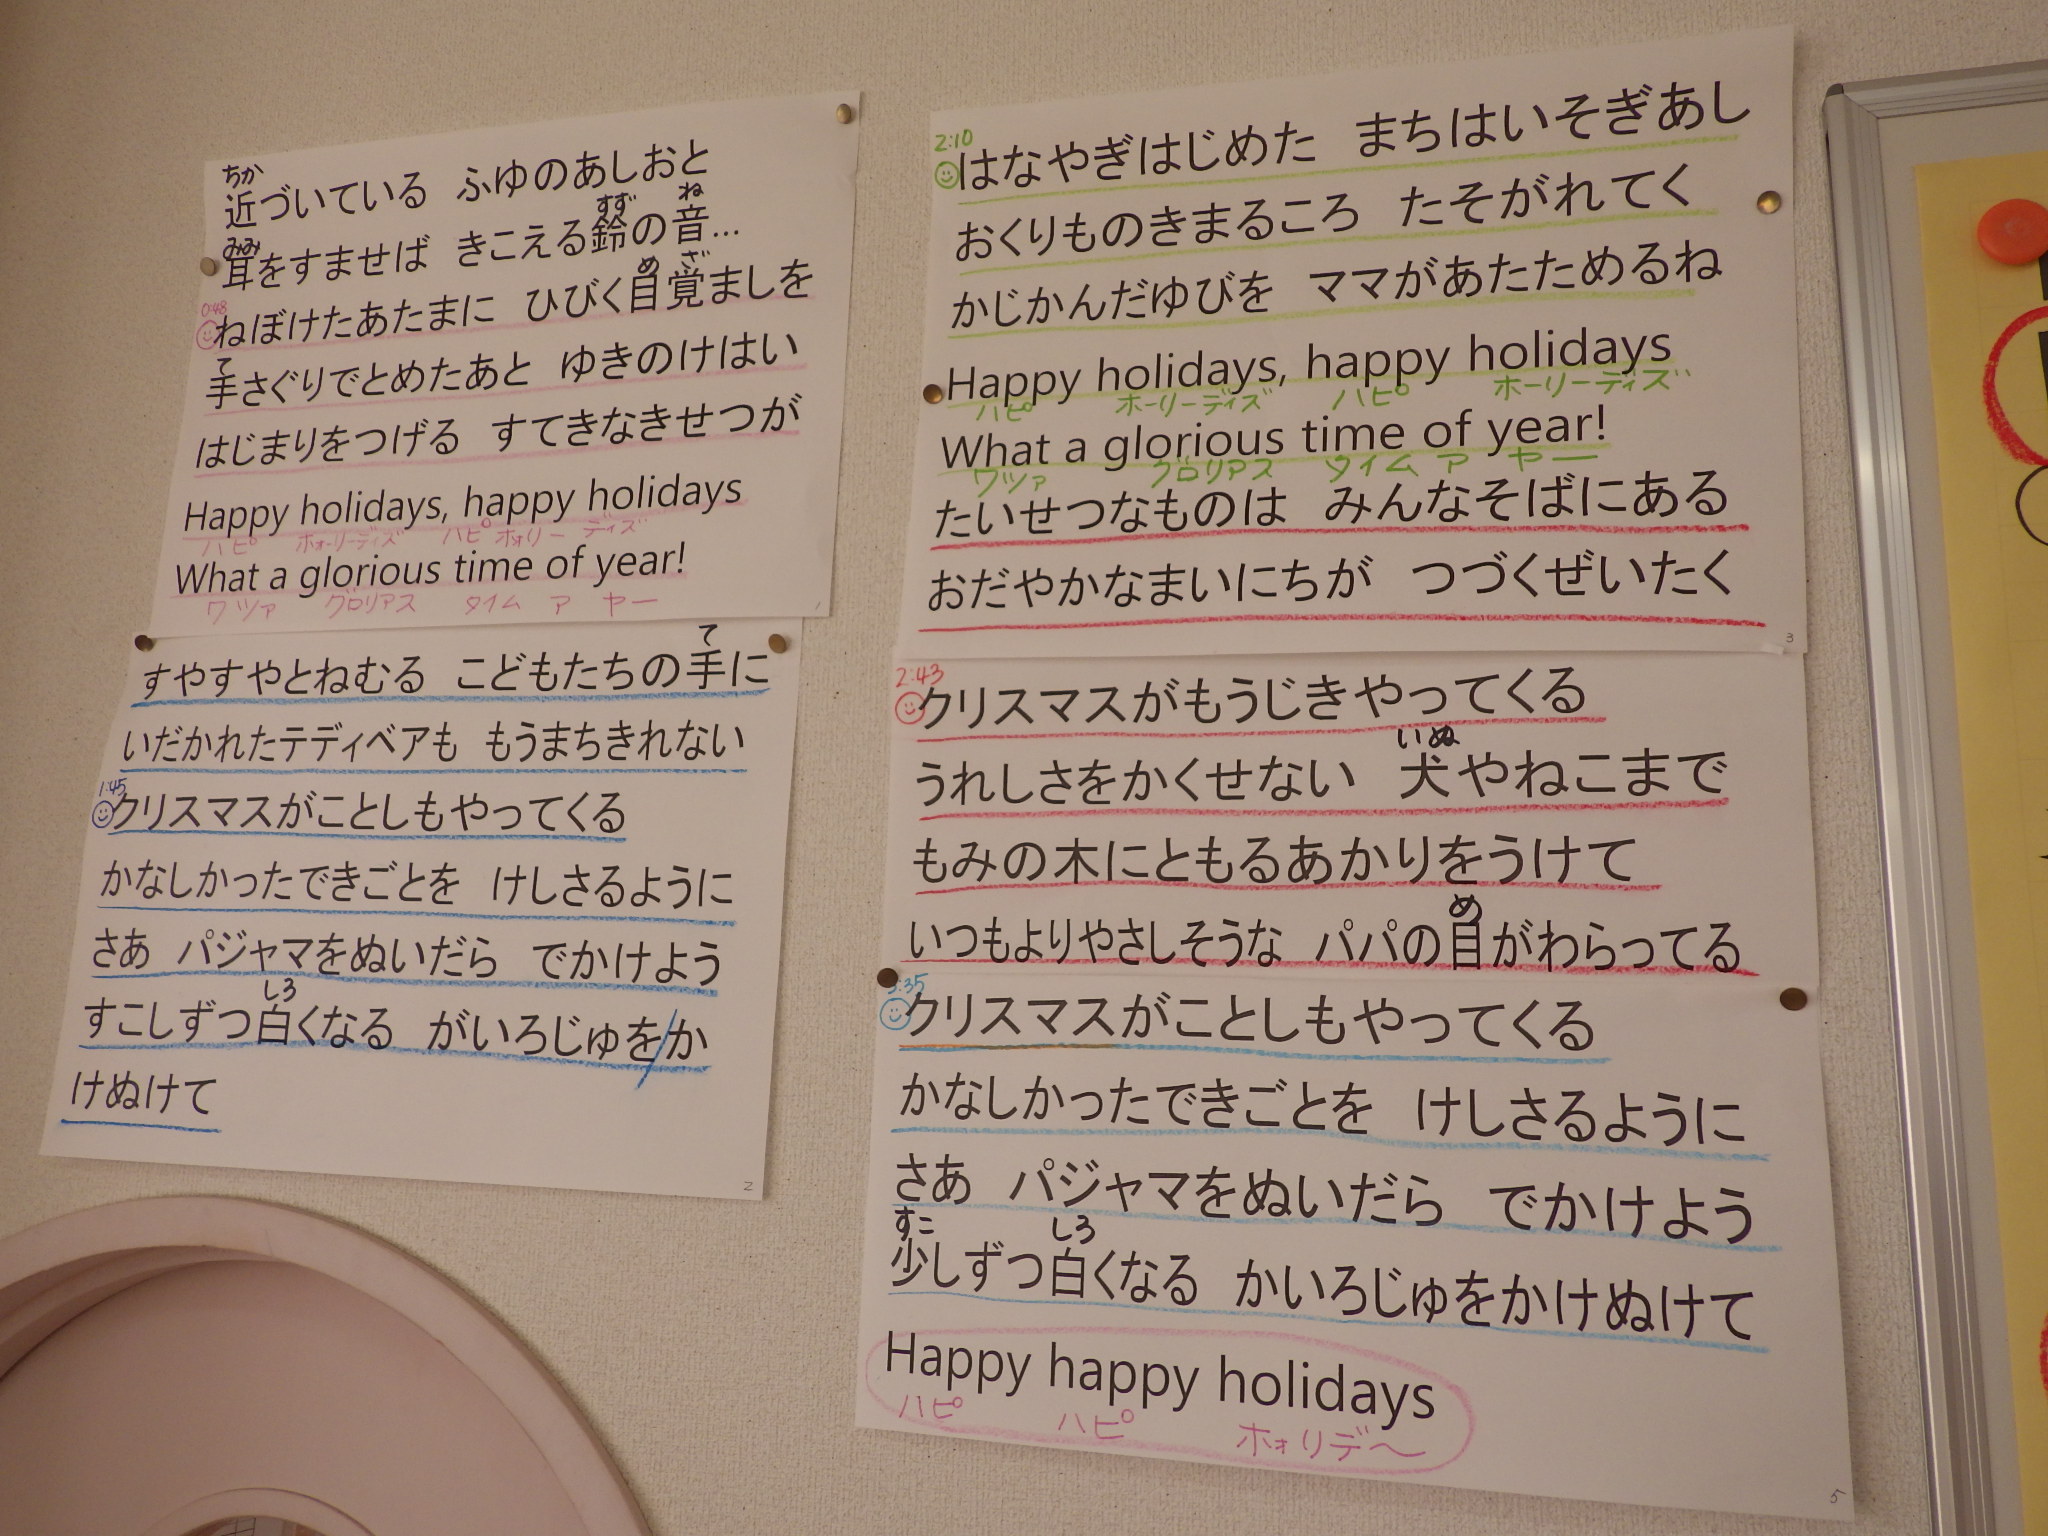 ちか
近づいている ふゆのあしおと
みみ すず ね
耳をすませば きこえる鈴の音...
0:48 め ざ
ねぼけたあたまに ひびく目覚ましを
て
手さぐりでとめたあと ゆきのけはい
はじまりをつげる すてきなきせつが
Happy holidays, happy holidays
ハピ ホォーリーディズ ハピ ホォリーディズ
What a glorious time of year!
ワツァ グロリアス タイム ア ヤー
1
て
すやすやとねむる こどもたちの手に
いだかれたテディベアも もうまちきれない
1:45
クリスマスがことしもやってくる
かなしかったできごとを けしさるように
さあ パジャマをぬいだら でかけよう
しろ
すこしずつ白くなる がいろじゅを/か
けぬけて
2
2:10
はなやぎはじめた まちはいそぎあし
おくりものきまるころ たそがれてく
かじかんだゆびを ママがあたためるね
Happy holidays, happy holidays
ハピ ホーリーディズ ハピ ホーリーディズ
What a glorious time of year!
ワツァ グロリアス タイム ア ヤー
たいせつなものは みんなそばにある
おだやかなまいにちが つづくぜいたく
3
2:43
クリスマスがもうじきやってくる
いぬ
うれしさをかくせない 犬やねこまで
もみの木にともるあかりをうけて
め
いつもよりやさしそうな パパの目がわらってる
3:35
クリスマスがことしもやってくる
かなしかったできごとを けしさるように
さあ パジャマをぬいだら でかけよう
すこ しろ
少しずつ白くなる かいろじゅをかけぬけて
Happy happy holidays
ハピ ハピ ホォリデ〜
5